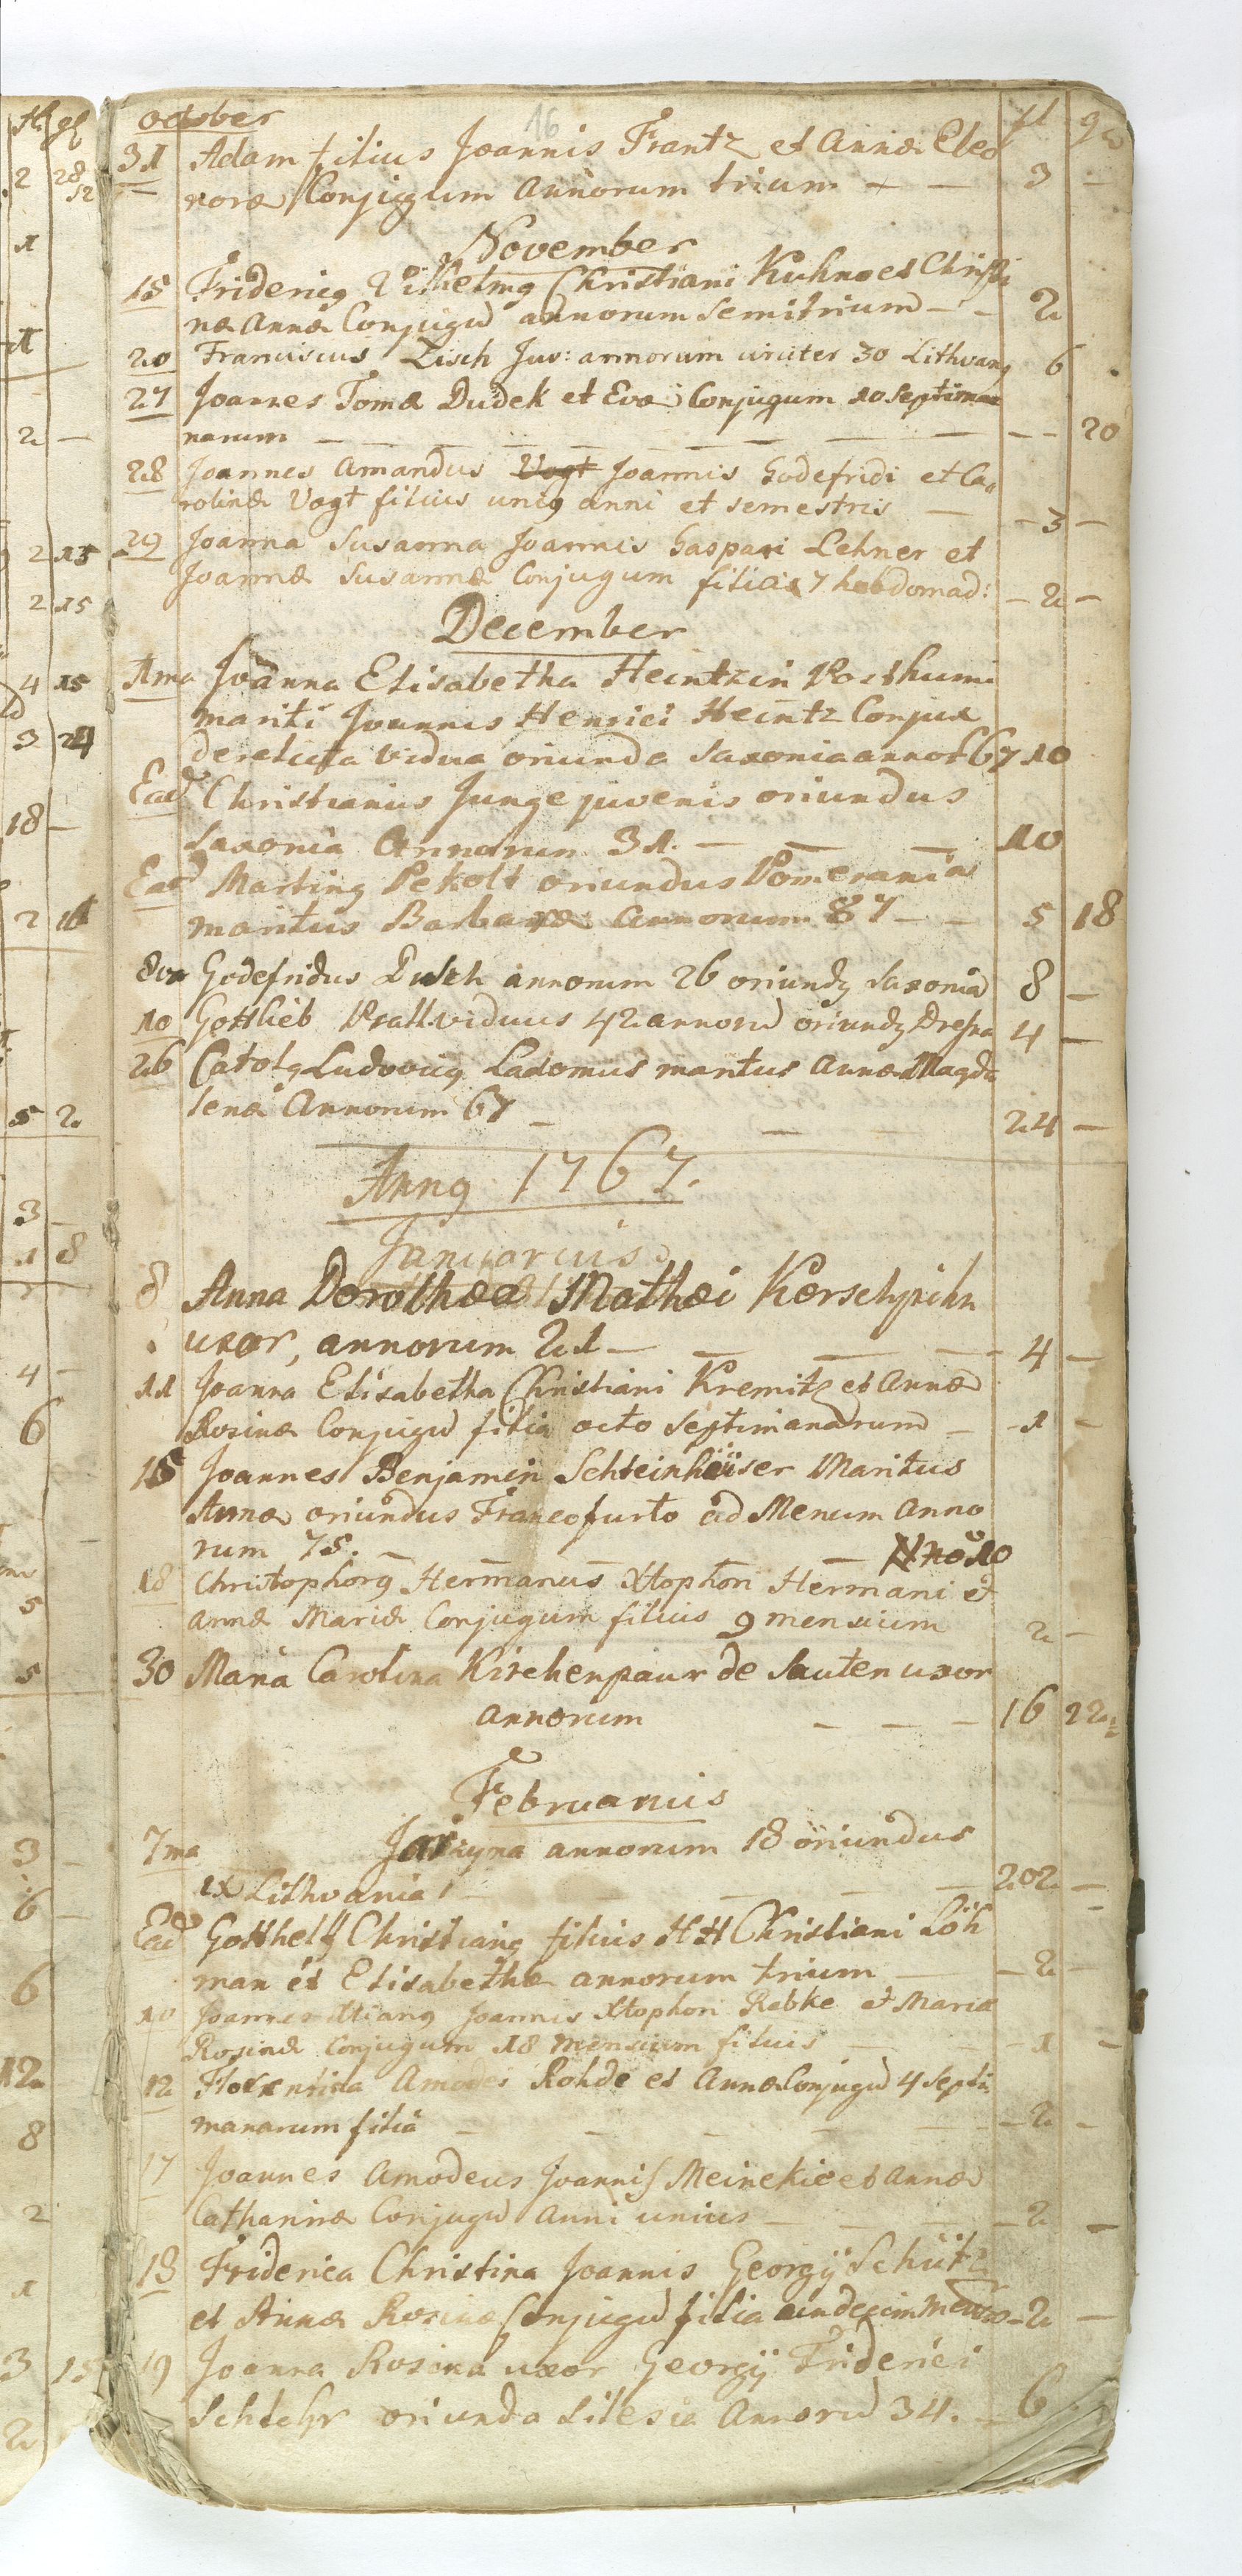 october 16 fl gr
31 Adam filius Joannis Frantz et Annæ Eleo
noræ Conjugum Annorum trium — — 3 —
November
15 Fridericq Vilhelmq Christiani Kuhno et Christi
næ Annæ Conjugū annorum semitrium — — 2
20 Franciscus Lisch Juv: annorum circiter 30 Lithvanq 6
27 Joannes Tomæ Dudek et Evæ Conjugum 10 septima
narum — — — — — — — — 20
28 Joannes Amandus Vogt Joannis Godefridi et Ca
rolinæ Vogt filius uniq anni et semestris — — 3 —
29 Joanna Susanna Joannis Gaspari Lehner et
Joannæ Susannæ Conjugum filia 7 hebdomad: — 2 —
December
1ma Joanna Elisabetha Heintzin Posthumi
mariti Joannis Henrici Heintz Conjux
derelicta vidua oriunda Saxonia annor 67 10
Ead Christianus Junge juvenis oriundus
Saxonia Annorum 31. — — — 10
Ead Martinq Pekolt oriundus Pomerania
maritus Barbaræ Annorum 87 — — 5 18
8va Godefridus Dusch annorum 26 oriundq Saxonia 8 —
10 Gottlieb Prall viduus 42 annorū oriundq 4 —
26 Carolq Ludovicq Ladomus maritus Annæ Magda
lenæ Annorum 67 — — — 24 —
Annq 1767.
Januarius
8 Anna Dorothea Mathæi Kerschpihn
uxor, annorum 21 — — — — 4 —
11 Joanna Elisabetha Christiani Kremitz et Annæ
Rosinæ Conjugū filia octo septimanarum — - 1 -
15 Joannes Benjamin Schleinheiser Maritus
Annæ oriundus Francofurto ad Menum Anno
rum 75. — — 10
18 Christophorq Hermanus Xtophori Hermani et
Annæ Mariæ Conjugum filius 9 mensium 2 —
30 Maria Carolina Kirchenpaur de Sauten uxor
Annorum — — — 16 22
Februarius
7ma annorum 18 oriundus
ex Lithvania — — — — 202 —
Ead Gotthelf Christianq filius HH Christiani Löh
man et Elisabethæ annorum trium — — 2 —
10 Joannes Joannis Xtophori Rebke et Mariæ
Rosinæ Conjugum 18 mensium filius — — - 1 -
12 Florentina Amodei Rohde et Annæ Conjugū 4 septi
manarum filia — — — — — 2 -
17 Joannes Amodeus Joannis Meinekie et Annæ
Catharinæ Conjugū Anni unius — — — 2 —
18 Friderica Christina Joannis Georgij Schütz
et Annæ Rosinæ Conjugū filia undecim mens - 2 —
19 Joanna Rosina uxor Georgij Friderici
Schlehr oriunda Silesia Annorū 34. — 6